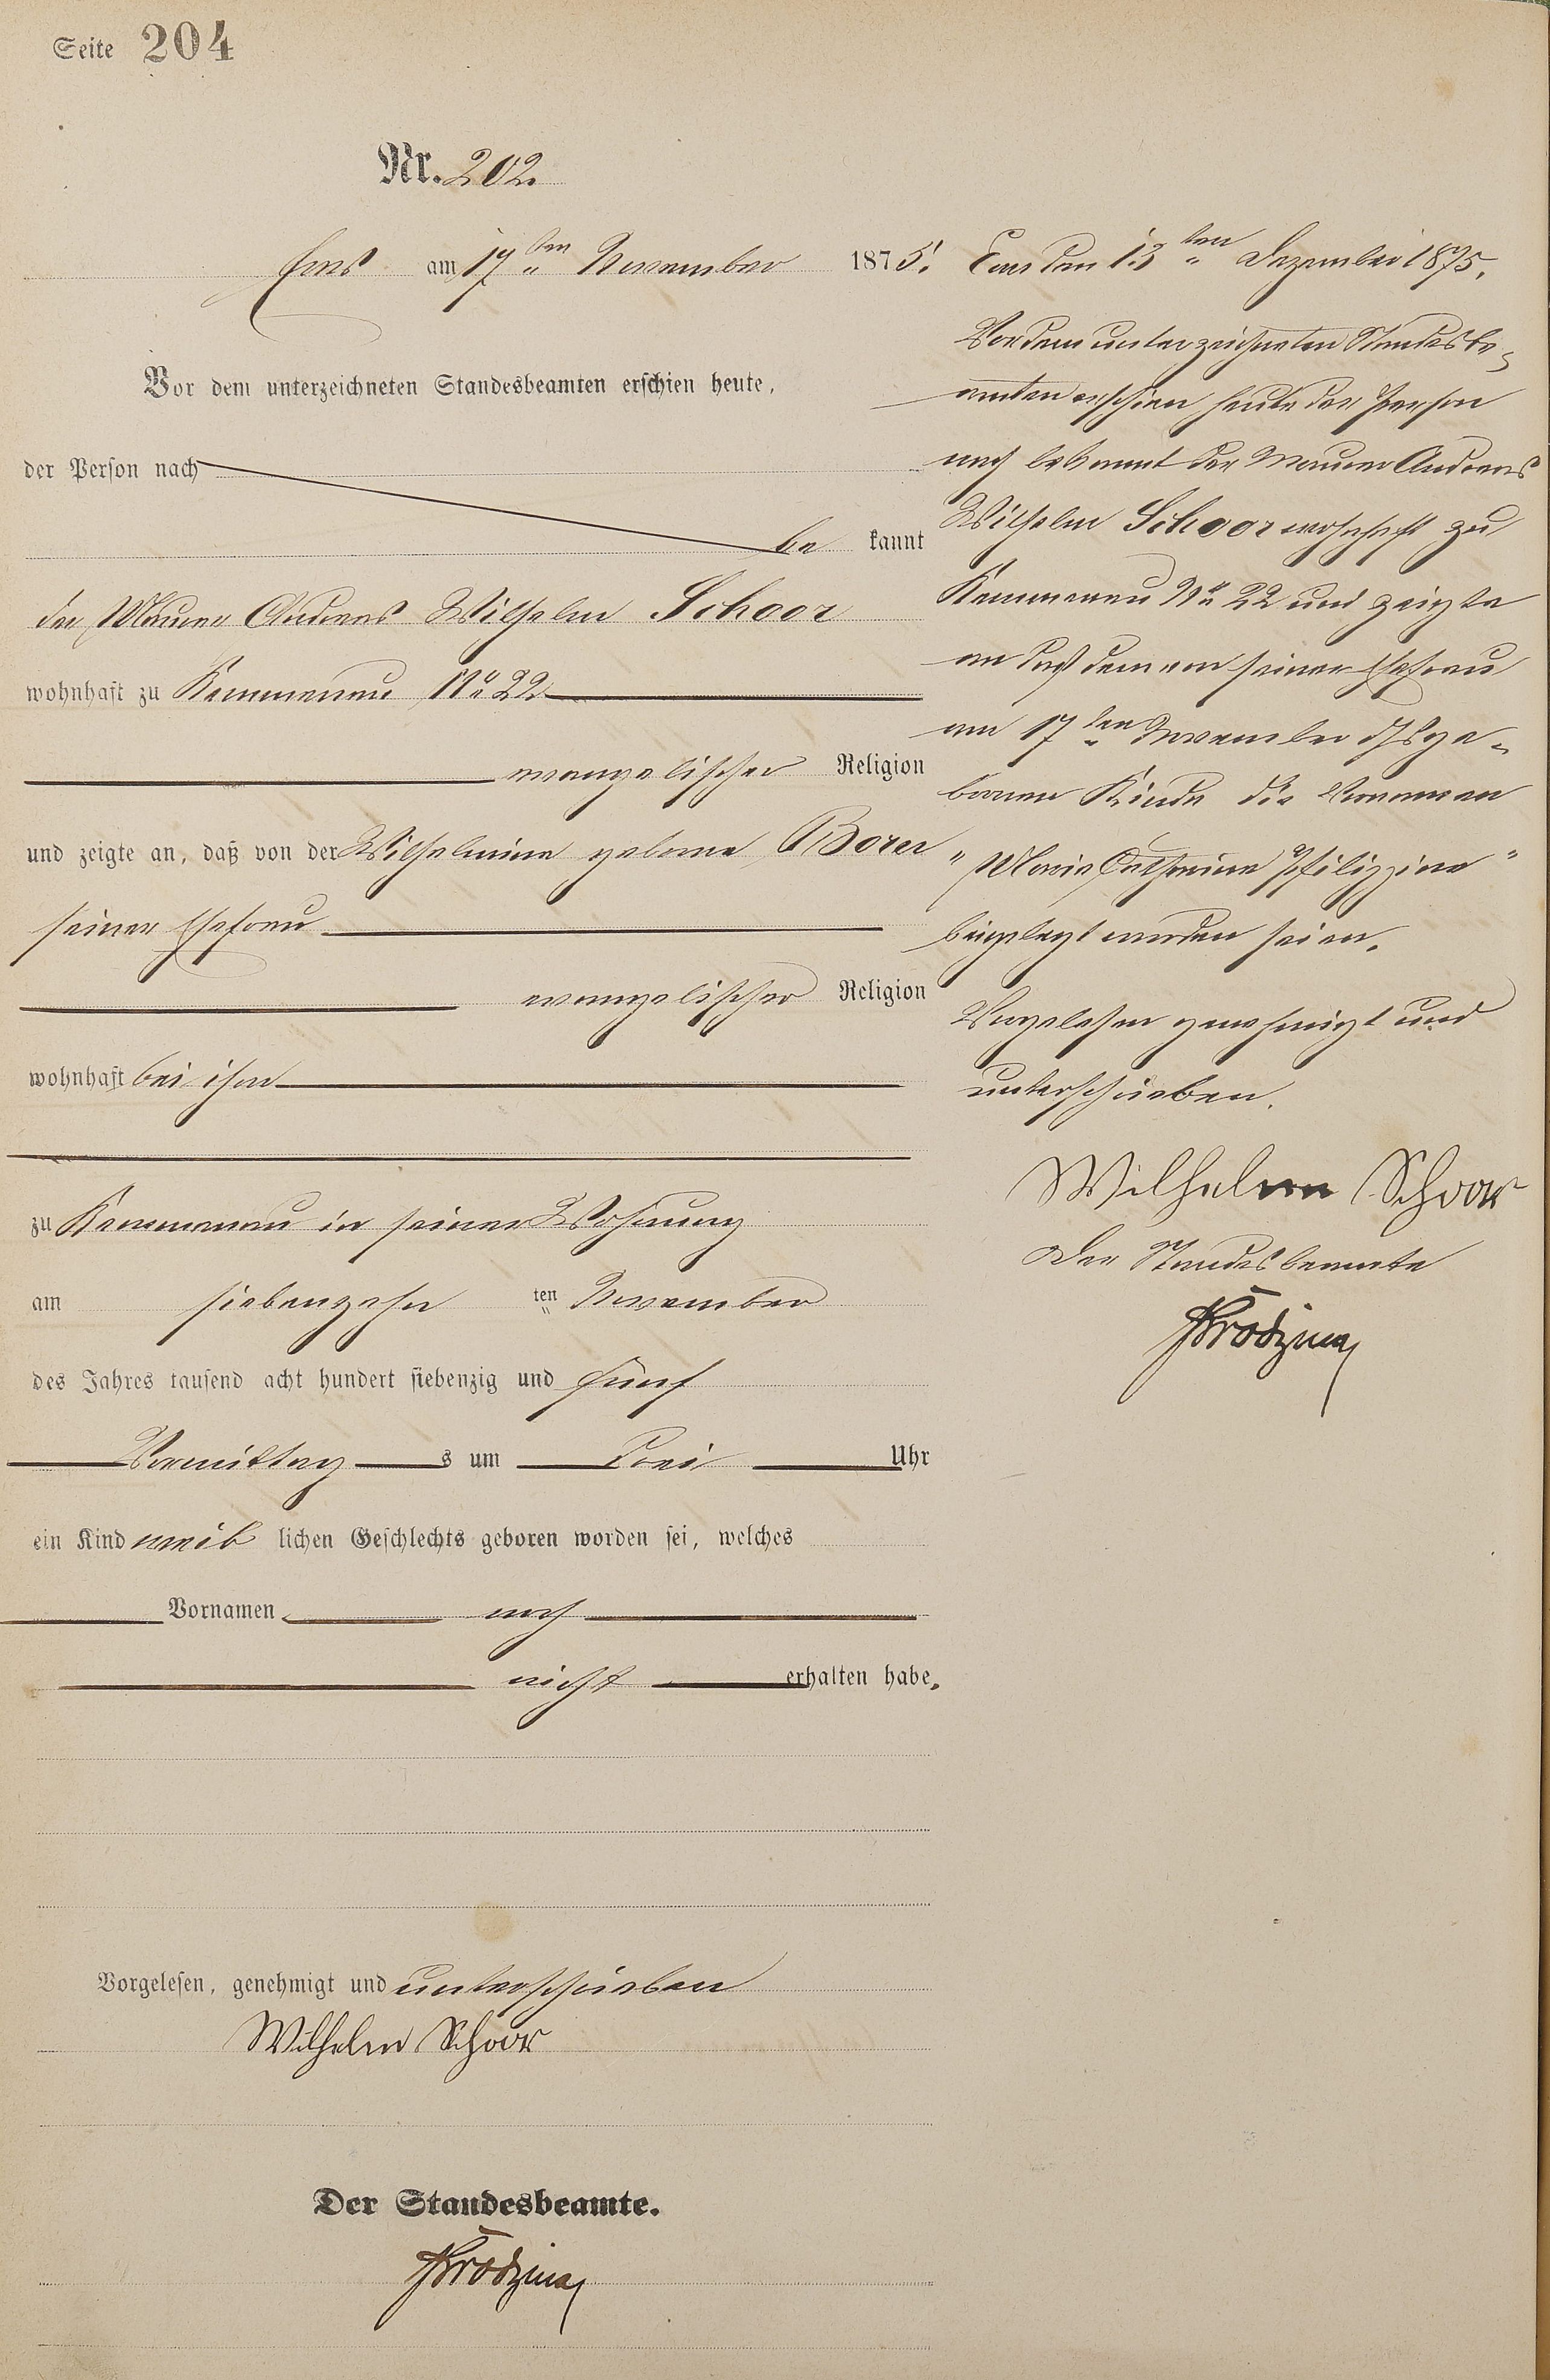 Seite 204
Nr. 202.
Ems am 17ten November 1875.
Vor dem unterzeichneten Standesbeamten erschien heute,
der Person nach
be kannt
der Maurer Andreas Wilhelm Schoor
wohnhaft zu Kemmenau No 22
evangelischer Religion
und zeigte an, daß von der Wilhelmine geborne
seiner Ehefrau
evangelischer Religion
wohnhaft bei ihm
zu Kemmenau in seiner Wohnung
am siebenzehn ten November
des Jahres tausend acht hundert siebenzig und fünf
Vormittags um drei Uhr
ein Kind weiblichen Geschlechts geboren worden sei, welches
Vornamen noch
nicht erhalten habe.
Vorgelesen, genehmigt und unterschrieben
Wilhelm Schoor
Der Standesbeamte.
Ems den 13ten Dezember 1875.
Vor dem unterzeichneten Standesbe-
amten erschien heute der Person
nach bekannt der Maurer Andreas
Wilhelm Schoor wohnhaft zu
Kemmenau No 22 und zeigte
an daß dem von seiner Ehefrau
am 17ten November ds ge-
bornen Kinde die Vornamen
"Maria Catharina Philippine"
beigelegt worden seien.
Vorgelesen genehmigt und
unterschrieben.
Wilhelm Schoor
Der Standesbeamte